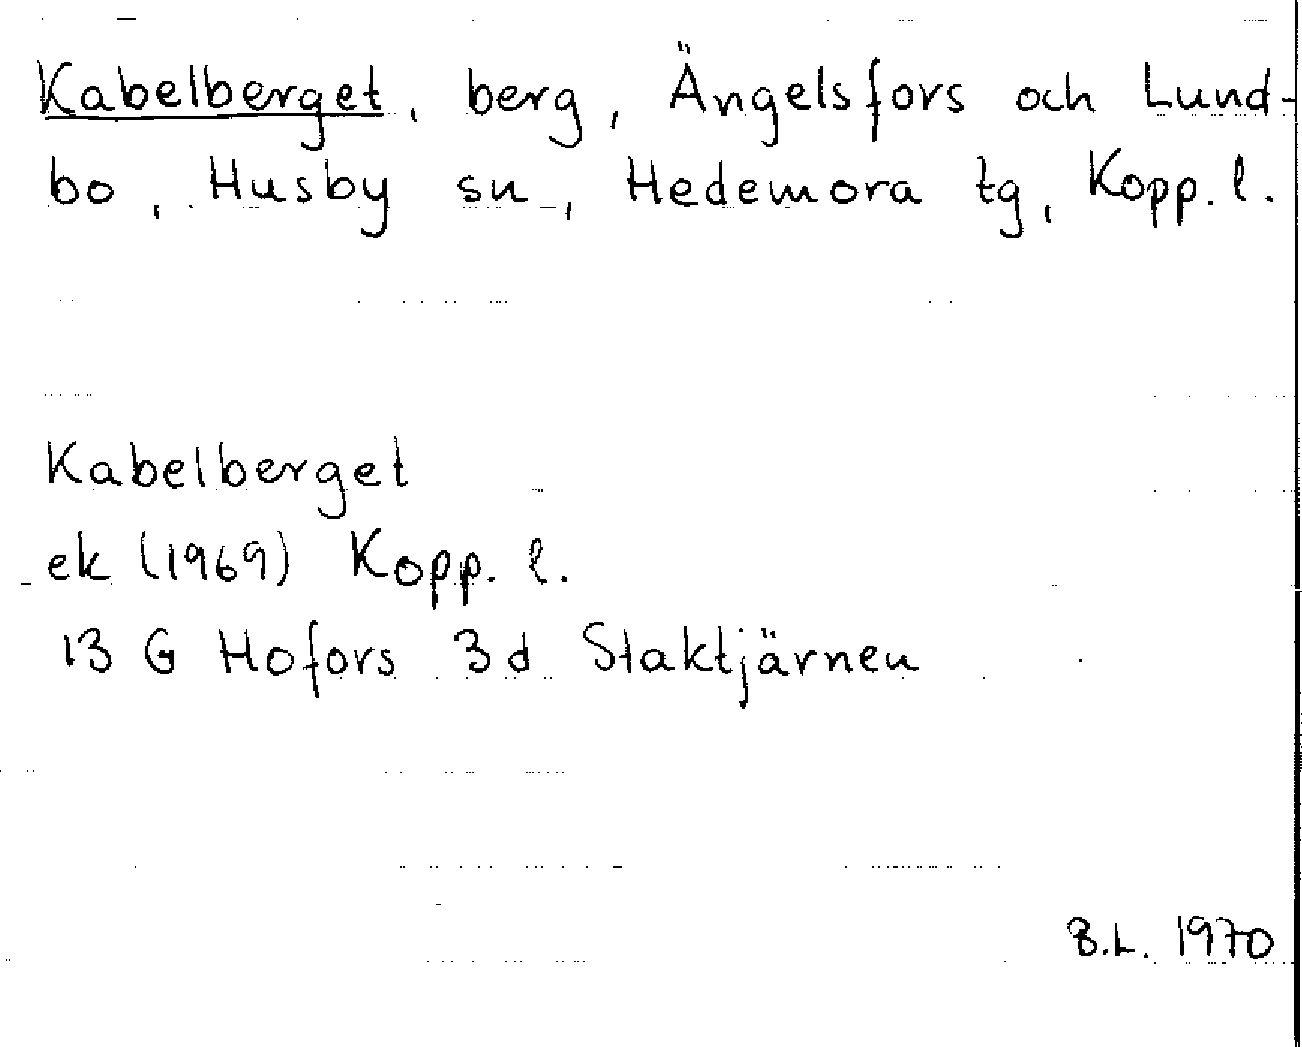 Kabelberget, berg, Ängelsfors och Lund-
bo, Husby sn, Hedemora tg, Kopp. l.
Kabelberget
ek (1969) Kopp. l.
13 G Hofors 3d Staktjärnen
B.L. 1970